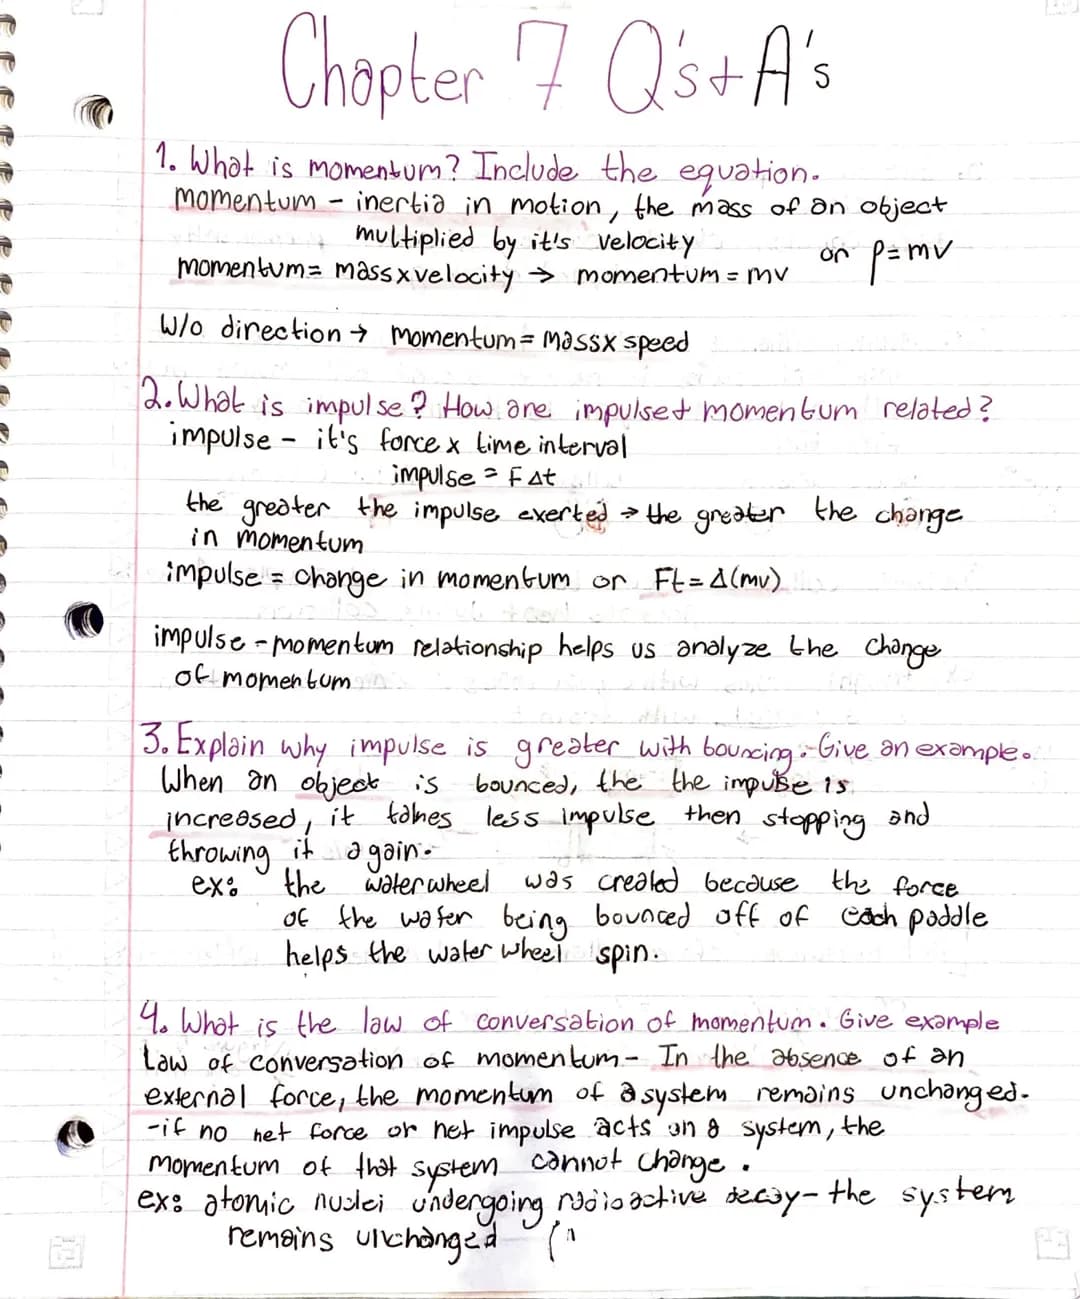 Chapter 7 Q's + A's
1. What is momentum? Include the equation.
momentum - inertia in motion, the mass of an object
multiplied by it's velocity
momentum = mass x velocity → momentum = mv or p = mv
W/o direction → momentum = mass x speed
2. What is impulse? How are impulse + momentum related?
impulse - it's force x time interval
impulse = F Δt
the greater the impulse exerted → the greater the change
in momentum
impulse = change in momentum or Ft = Δ(mv)
impulse - momentum relationship helps us analyze the change
of momentum
3. Explain why impulse is greater with bouncing. Give an example.
When an object is bounced, the the impulse is
increased, it takes less impulse then stopping and
throwing it again.
ex: the waterwheel was created because the force
of the water being bounced off of each paddle
helps the water wheel spin.
4. What is the law of conversation of momentum. Give example
Law of conversation of momentum - In the absence of an
external force, the momentum of a system remains unchanged.
- if no net force or net impulse acts on a system, the
momentum of that system cannot change.
ex: atomic nuclei undergoing radioactive decay - the system
remains unchanged